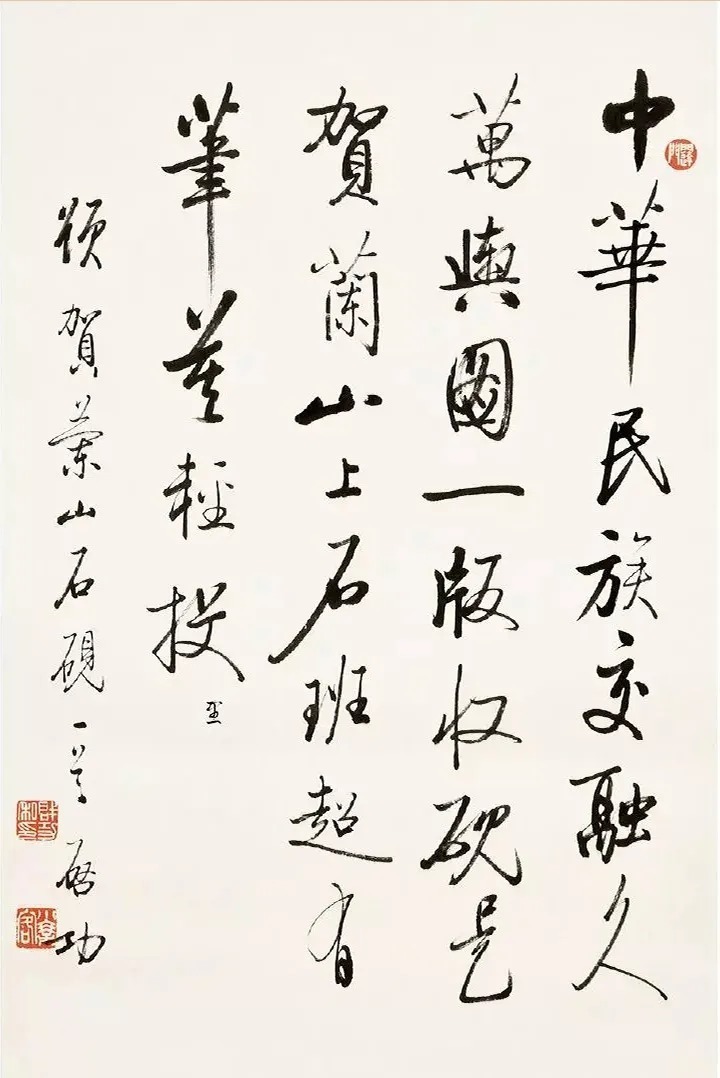 中華民族交融久
萬輿圖一版收硯是
賀蘭山上石班超有
筆莫輕投 里
賀蘭山石硯一首 启功